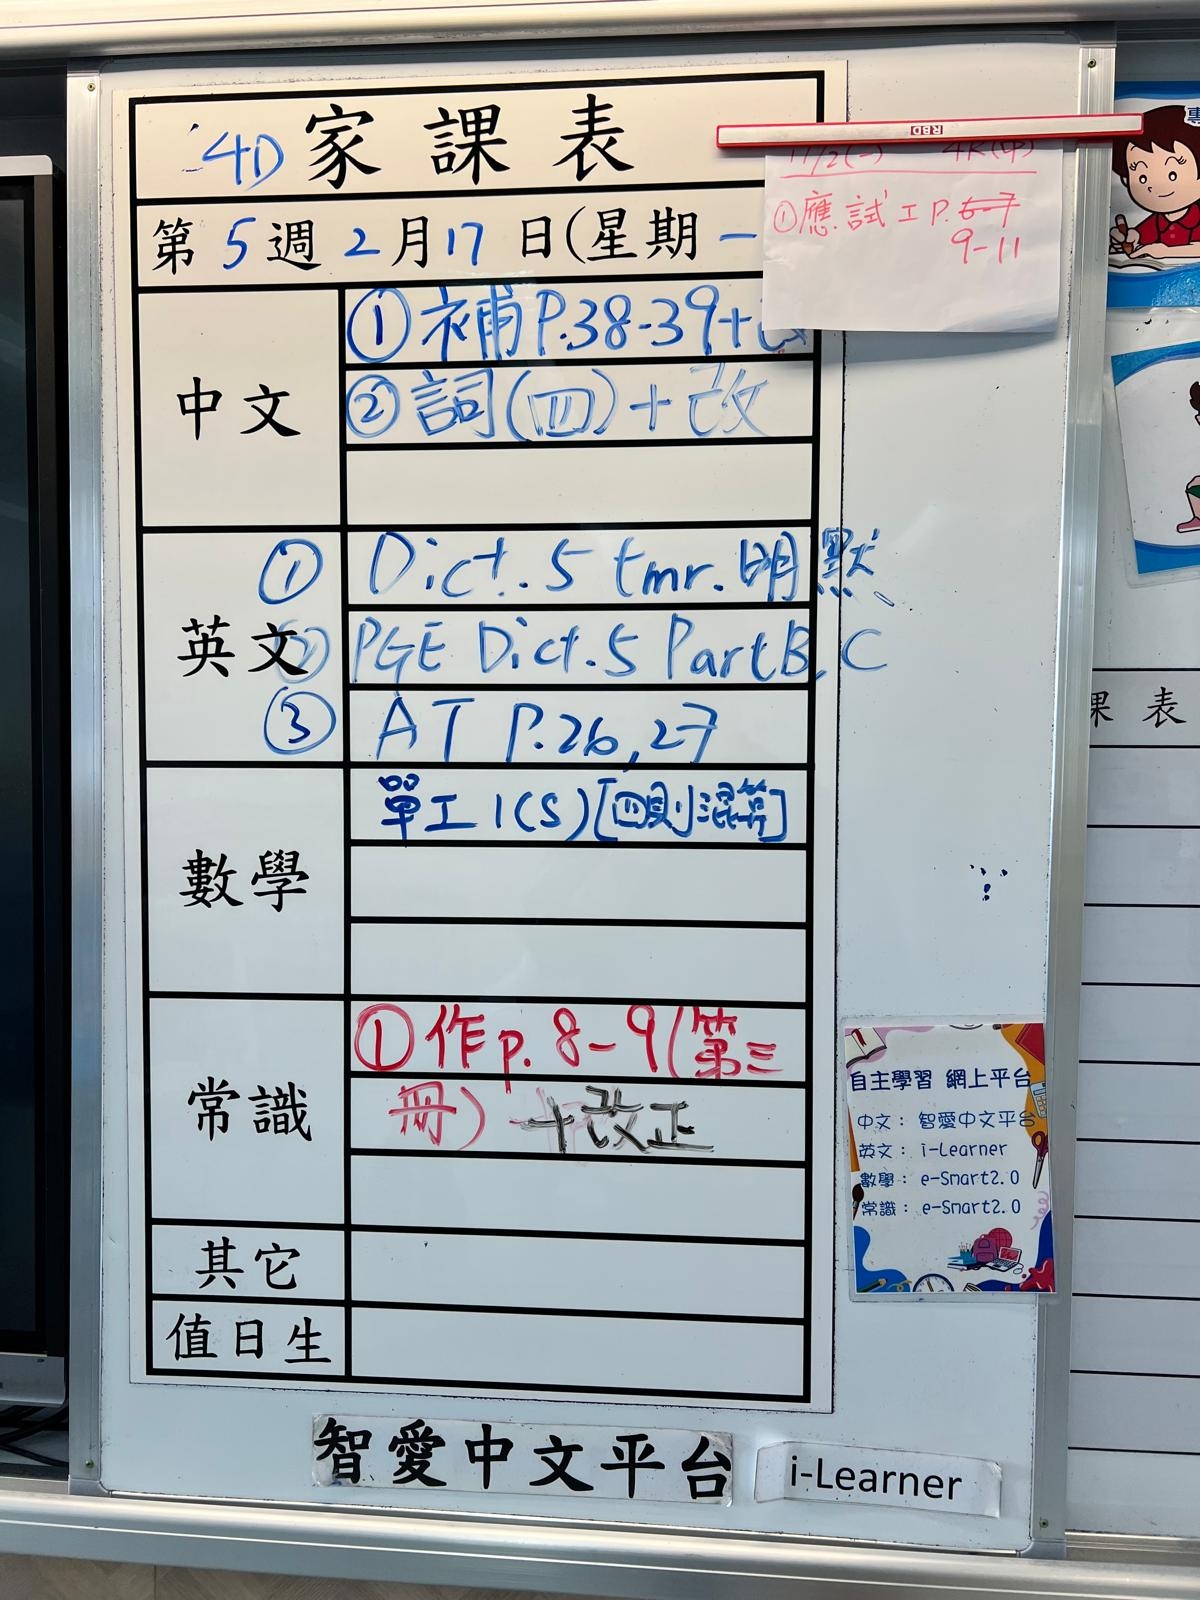 4D 家課表
第 5 週 2 月 17 日(星期 一
中文
① 補 P.38-39+改
② 詞(四)+改
英文
① Dict. 5 tmr. 明默
② PGE Dict. 5 Part B, C
③ AT P.26, 27
數學
單工 1(S)[四則混算]
常識
① 作 p. 8-9(第三
冊) +改正
其它
值日生
智愛中文平台
i-Learner
RBD
①應試工 P. 6-7
9-11
自主學習 網上平台
中文： 智愛中文平台
英文： i-Learner
數學： e-Smart2.0
常識： e-Smart2.0
課 表